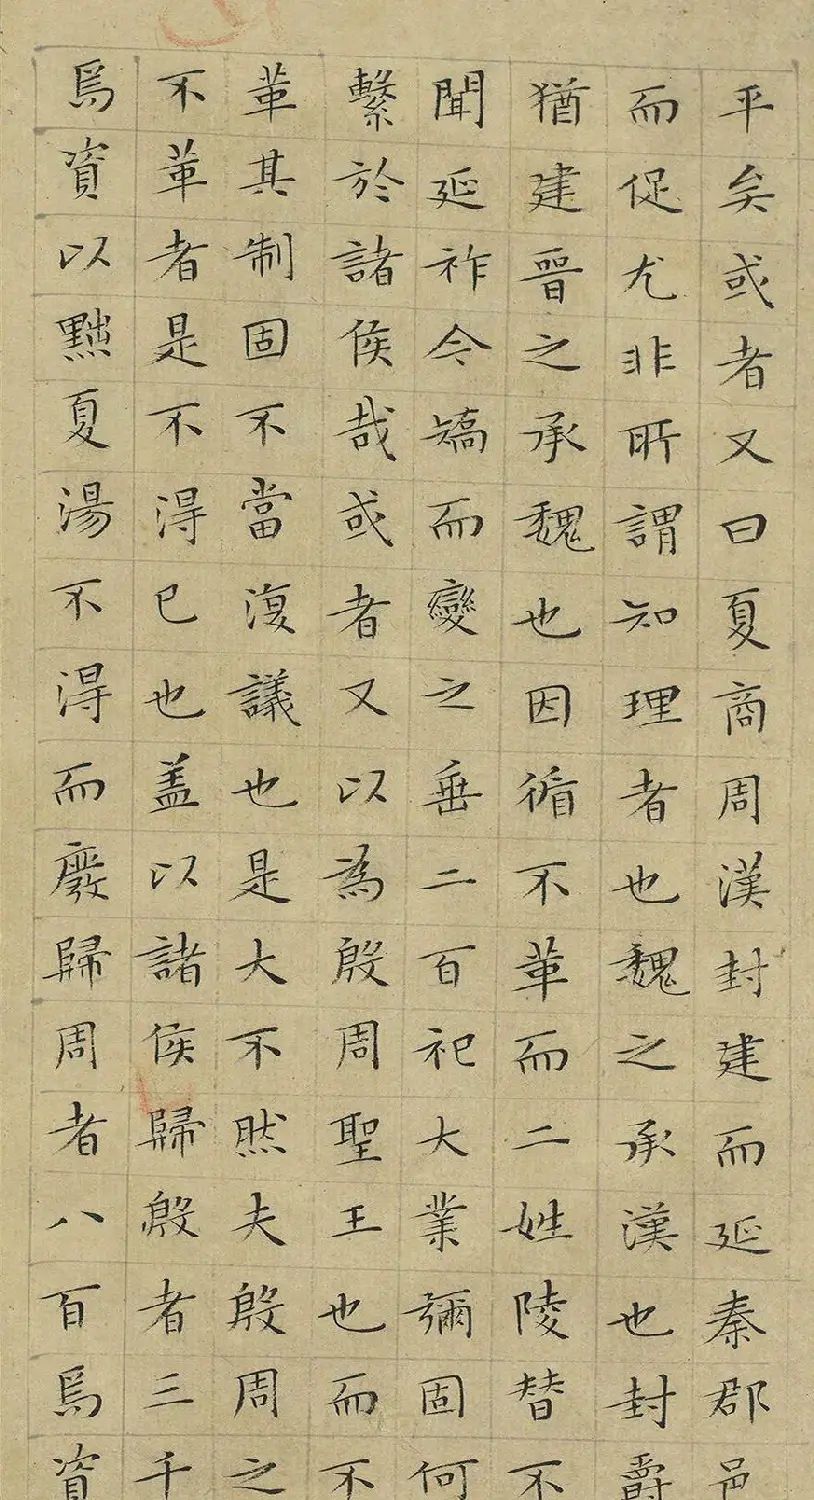 平矣或者又曰夏商周漢封建而延秦郡邑
而促尤非所謂知理者也魏之承漢也封爵
猶建晉之承魏也因循不革而二姓陵替不
聞延祚今矯而變之垂二百祀大業彌固何
繫於諸侯哉或者又以為殷周聖王也而不
革其制固不當復議也是大不然夫殷周之
不革者是不得已也蓋以諸侯歸殷者三千
焉資以黜夏湯不得而廢歸周者八百焉資